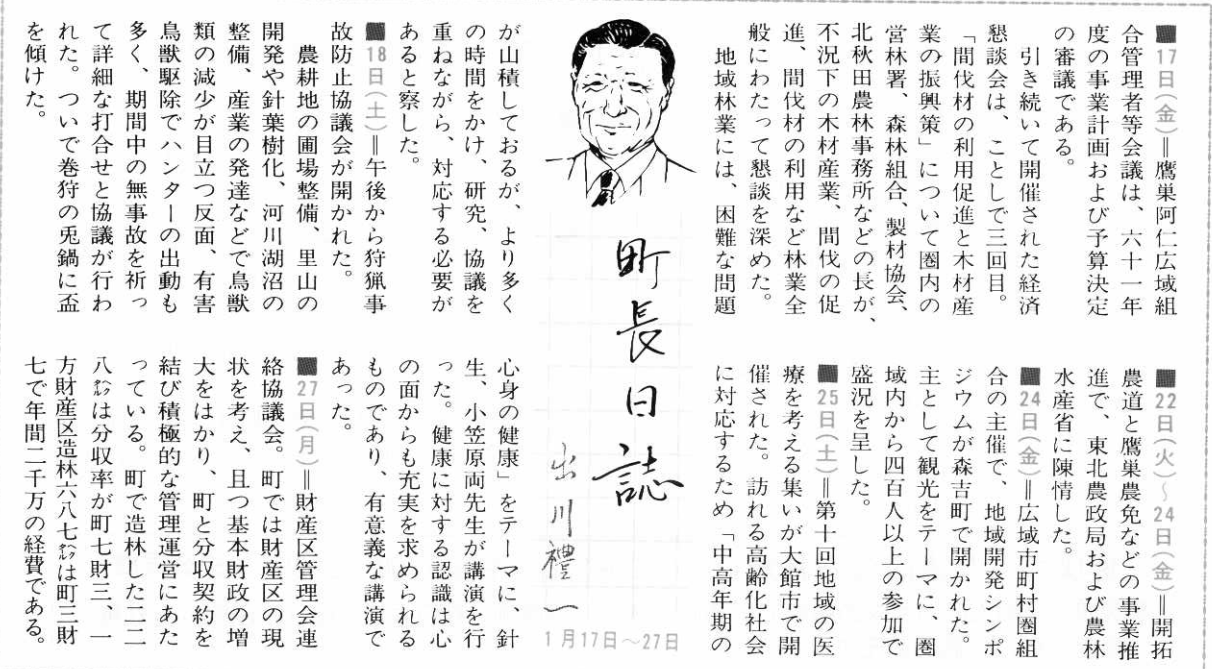 町長日誌
出川禮一
1月17日〜27日
■17日(金)‖鷹巣阿仁広域組
合管理者等会議は、六十一年
度の事業計画および予算決定
の審議である。
引き続いて開催された経済
懇談会は、ことしで三回目。
「間伐材の利用促進と木材産
業の振興策」について圏内の
営林署、森林組合、製材協会、
北秋田農林事務所などの長が、
不況下の木材産業、間伐の促
進、間伐材の利用など林業全
般にわたって懇談を深めた。
地域林業には、困難な問題
が山積しておるが、より多く
の時間をかけ、研究、協議を
重ねながら、対応する必要が
あると察した。
■18日(土)‖午後から狩猟事
故防止協議会が開かれた。
農耕地の圃場整備、里山の
開発や針葉樹化、河川湖沼の
整備、産業の発達などで鳥獣
類の減少が目立つ反面、有害
鳥獣駆除でハンターの出動も
多く、期間中の無事故を祈っ
て詳細な打合せと協議が行わ
れた。ついで巻狩の兎鍋に盃
を傾けた。
■22日(火)〜24日(金)‖開拓
農道と鷹巣農免などの事業推
進で、東北農政局および農林
水産省に陳情した。
■24日(金)‖広域市町村圏組
合の主催で、地域開発シンポ
ジウムが森吉町で開かれた。
主として観光をテーマに、圏
域内から四百人以上の参加で
盛況を呈した。
■25日(土)‖第十回地域の医
療を考える集いが大館市で開
催された。訪れる高齢化社会
に対応するため「中高年期の
心身の健康」をテーマに、針
生、小笠原両先生が講演を行
った。健康に対する認識は心
の面からも充実を求められる
ものであり、有意義な講演で
あった。
■27日(月)‖財産区管理会連
絡協議会。町では財産区の現
状を考え、且つ基本財政の増
大をはかり、町と分収契約を
結び積極的な管理運営にあた
っている。町で造林した二二
八㌶は分収率が町七財三、一
方財産区造林六八七㌶は町三財
七で年間二千万の経費である。